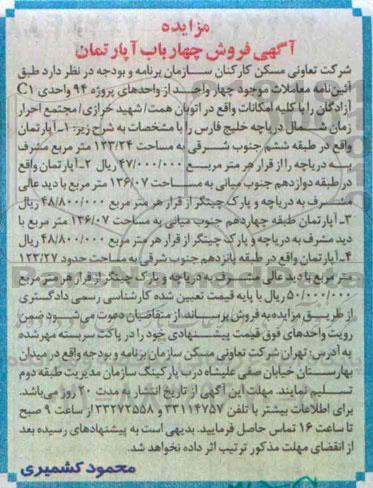 مزایده
آگهی فروش چهار باب آپارتمان
شرکت تعاونی مسکن کارکنان سازمان برنامه و بودجه در نظر دارد طبق
آئین نامه معاملات موجود چهار واحد از واحدهای پروژه ۹۴ واحدی C1
آزادگان را با کلیه امکانات واقع در اتوبان همت/ شهید خرازی/ مجتمع احرار
زمان شمال دریاچه خلیج فارس را با مشخصات به شرح زیر: ۱ـ آپارتمان
واقع در طبقه ششم جنوب شرقی به مساحت ۱۲۳/۲۴ متر مربع مشرف
به دریاچه را از قرار هر متر مربع ۴۷/۰۰۰/۰۰۰ ریال ۲ـ آپارتمان واقع
در طبقه دوازدهم جنوب میانی به مساحت ۱۳۶/۰۷ متر مربع با دید عالی
مشرف به دریاچه و پارک چیتگر از قرار هر متر مربع ۴۸/۸۰۰/۰۰۰ ریال
۳ـ آپارتمان طبقه چهاردهم جنوب میانی به مساحت ۱۳۶/۰۷ متر مربع با
دید مشرف به دریاچه و پارک چیتگر از قرار هر متر مربع ۴۸/۸۰۰/۰۰۰ ریال
۴ـ آپارتمان واقع در طبقه پانزدهم جنوب شرقی به مساحت حدود ۱۲۳/۲۷
متر مربع با دید عالی مشرف به دریاچه و پارک چیتگر از قرار هر متر مربع
۵۰/۰۰۰/۰۰۰ ریال با پایه قیمت تعیین شده کارشناسی رسمی دادگستری
از طریق مزایده به فروش برساند، از متقاضیان دعوت می شود ضمن
رویت واحدهای فوق قیمت پیشنهادی خود را در پاکت سربسته مهر شده
به آدرس: تهران شرکت تعاونی مسکن سازمان برنامه و بودجه واقع در میدان
بهارستان خیابان صفی علیشاه درب پارکینگ سازمان مدیریت طبقه دوم
تسلیم نمایند. مهلت این آگهی از تاریخ انتشار به مدت ۲۰ روز می باشد.
برای اطلاعات بیشتر با تلفن ۳۳۱۱۴۷۵۷ و ۳۳۲۷۲۵۵۸ از ساعت ۹ صبح
تا ساعت ۱۶ تماس حاصل فرمایید. بدیهی است به پیشنهادهای رسیده بعد
از انقضای مهلت مذکور ترتیب اثر داده نخواهد شد.
محمود کشمیری